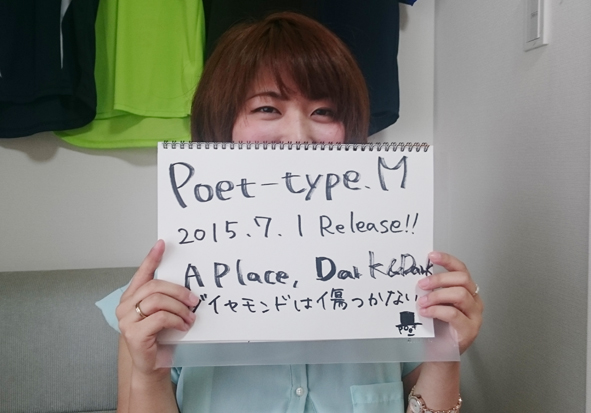 Poet-type.M
2015.7.1 Release!!
A Place, Dark & Dark
ダイヤモンドは傷つかない
POET